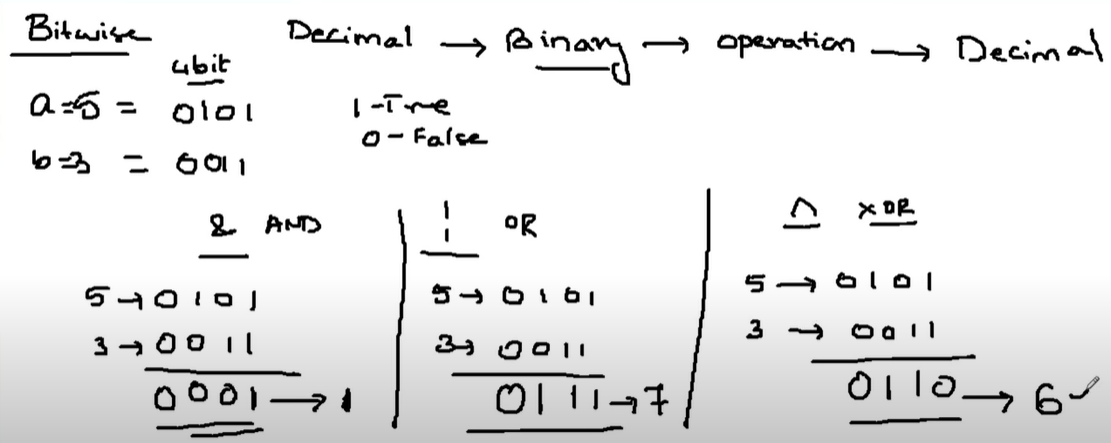 Bitwise Decimal → Binary → operation → Decimal
4bit
a=5 = 0101 1 - True
0 - False
b=3 = 0011
& AND
5 → 0101
3 → 0011
0001 → 1
¦ OR
5 → 0101
3 → 0011
0111 → 7
^ XOR
5 → 0101
3 → 0011
0110 → 6